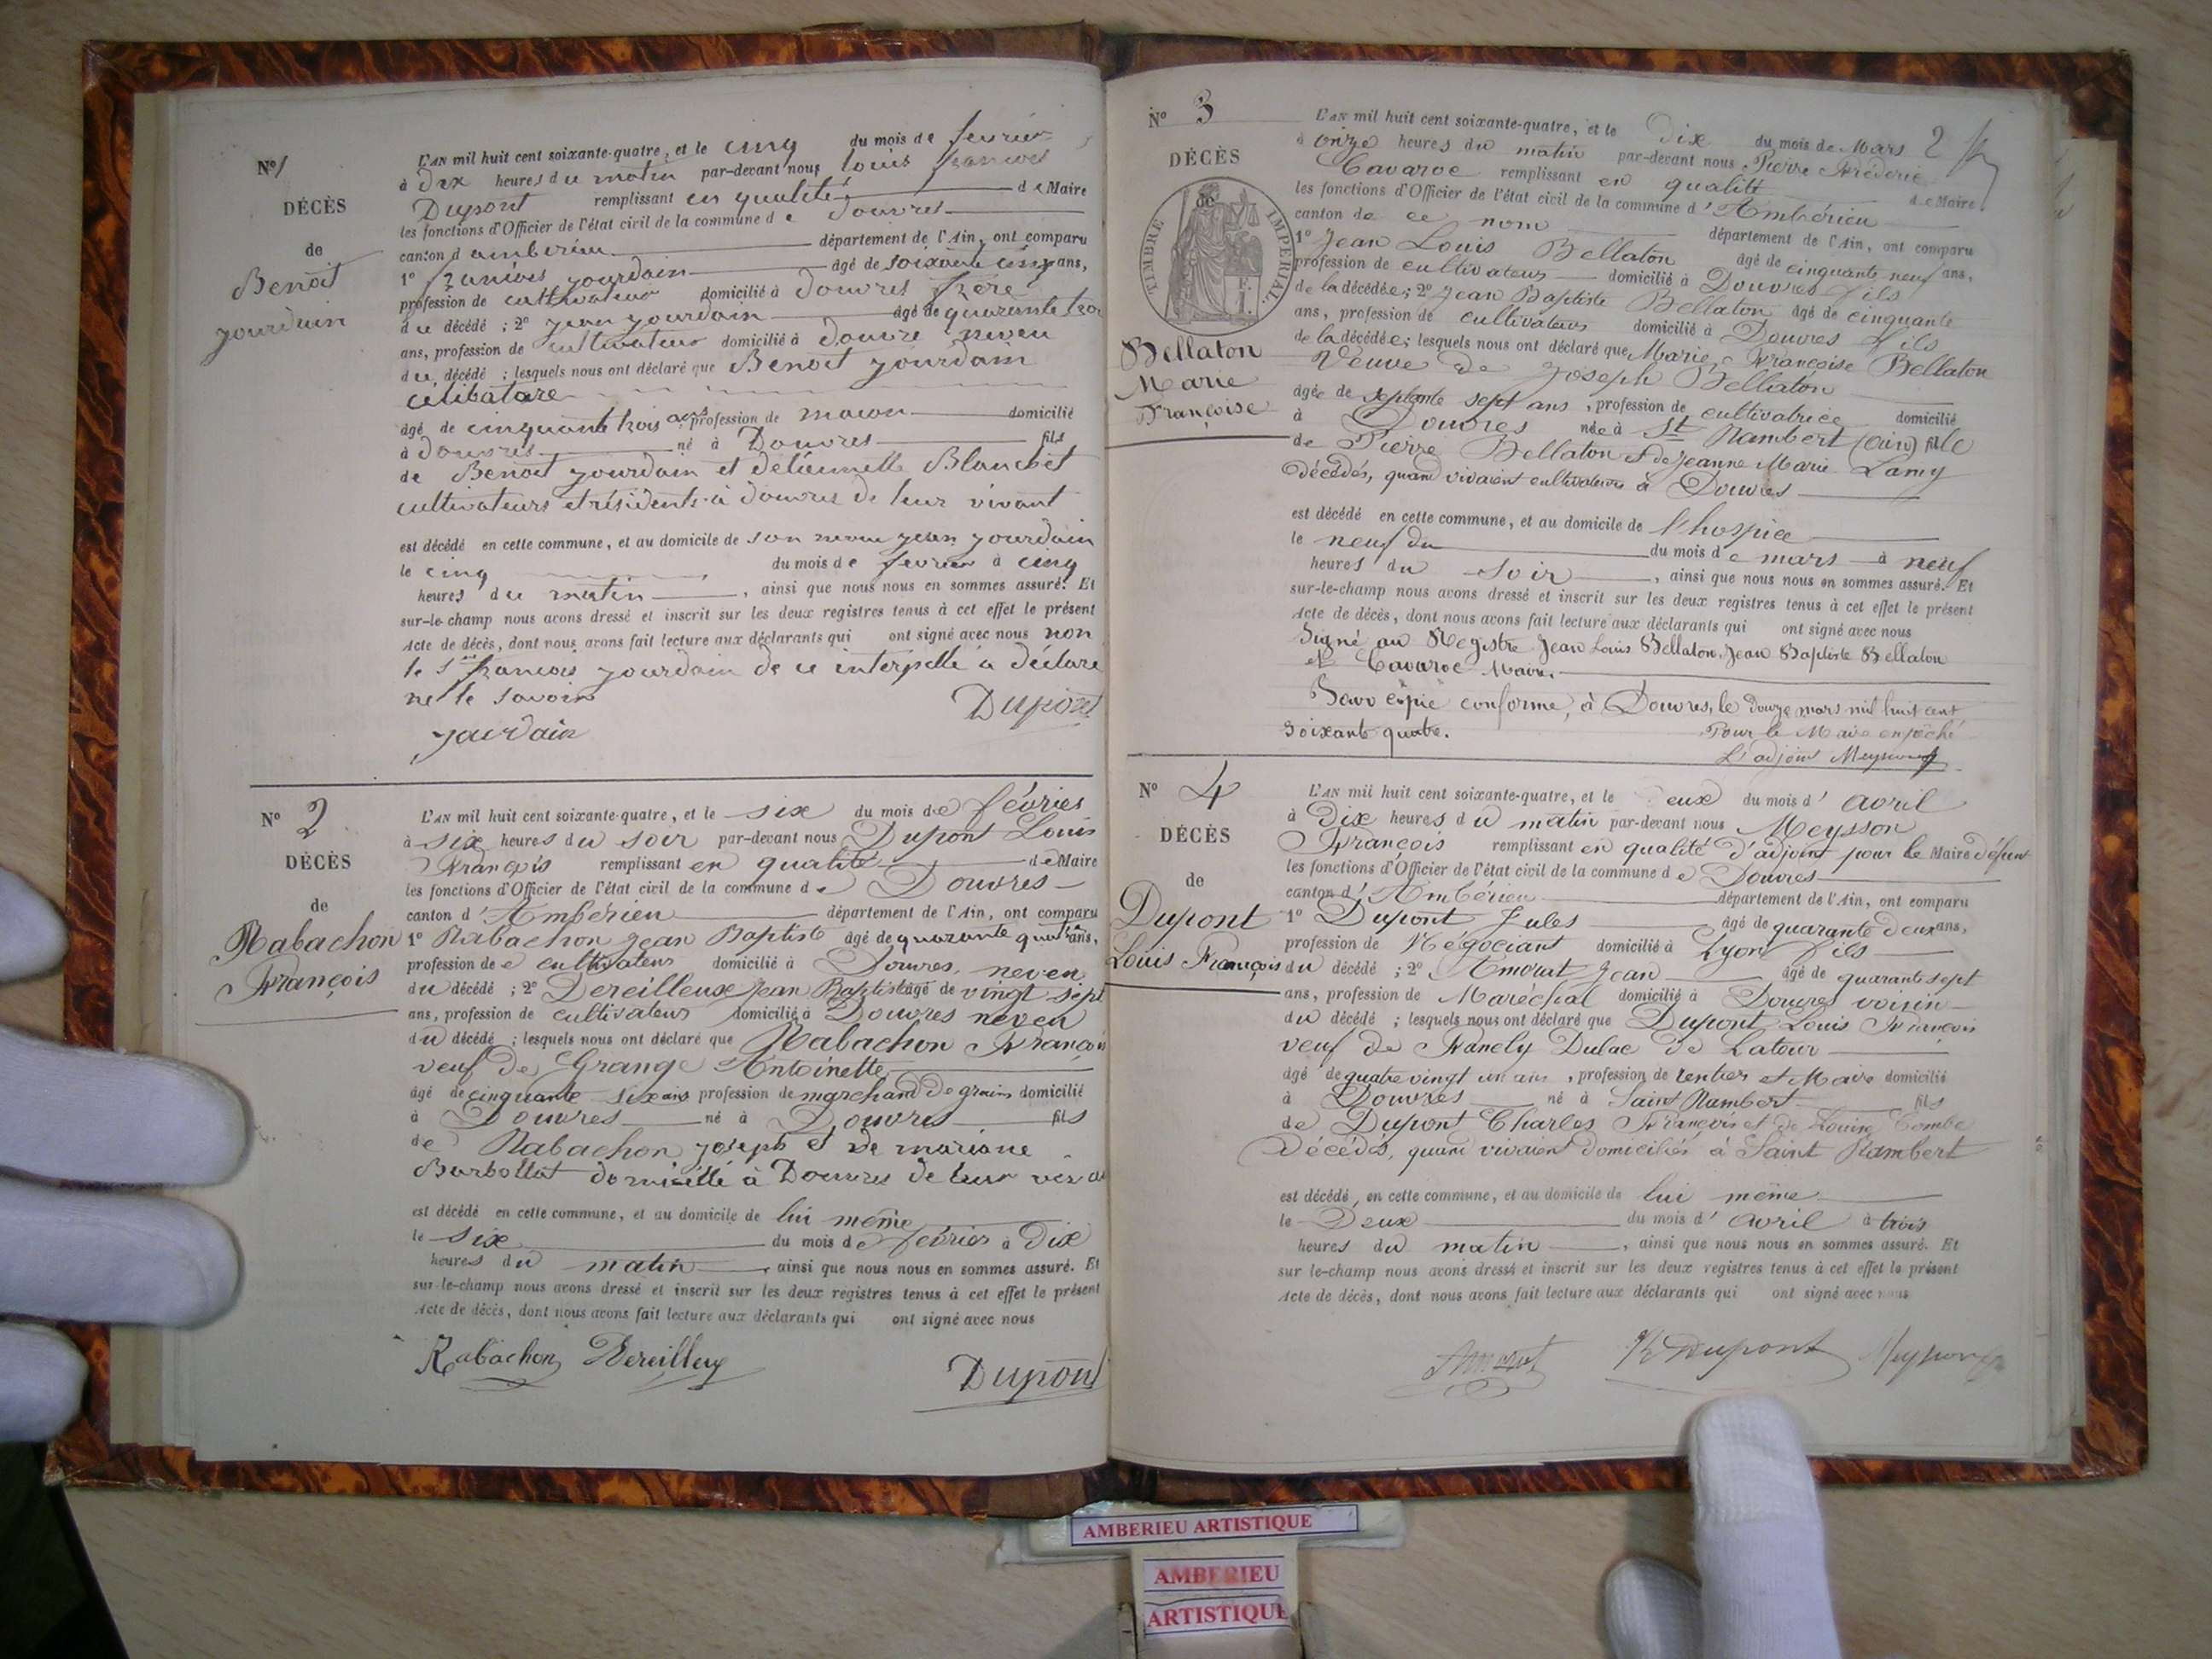 N° 1
DÉCÈS
de
Benoit
jourdain
L'AN mil huit cent soixante-quatre, et le cinq du mois de fevrier
à dix heures du matin par-devant nous louis francois
Dupont remplissant en qualité de Maire
les fonctions d'Officier de l'état civil de la commune de douvres
canton d amberieu département de l'Ain, ont comparu
1° francois jourdain âgé de soixante cinq ans,
profession de cultivateur domicilié à douvres frere
du décédé ; 2° jean jourdain âgé de quarante troi
ans, profession de cultivateur domicilié à douvre neveu
du décédé ; lesquels nous ont déclaré que Benoit jourdain
celibatare
âgé de cinquante trois ans profession de macon domicilié
à douvres né à Douvres fils
de Benoit jourdain et detiennette Blanchet
cultivateurs et résidents à douvres de leur vivant
est décédé en cette commune, et au domicile de son neveu jean jourdain
le cinq du mois de fevrier à cinq
heures du matin, ainsi que nous nous en sommes assuré. Et
sur-le-champ nous avons dressé et inscrit sur les deux registres tenus à cet effet le présent
Acte de décès, dont nous avons fait lecture aux déclarants qui ont signé avec nous non
le francois jourdain de ce interpellé a déclaré
ne le savoir
Dupont
jourdain
N° 2
DÉCÈS
de
Rabachon
François
L'AN mil huit cent soixante-quatre, et le six du mois de févries
à six heures du soir par-devant nous Dupont Louis
François remplissant en qualité de Maire
les fonctions d'Officier de l'état civil de la commune de Douvres
canton d'Ambérieu département de l'Ain, ont comparu
1° Rabachon jean Baptiste âgé de quarante quatre ans,
profession de cultivateur domicilié à Douvres, neveu
du décédé ; 2° Dereilleux jean Baptiste âgé de vingt sept
ans, profession de cultivateur domicilié à Douvres neveu
du décédé ; lesquels nous ont déclaré que Rabachon François
veuf de Grange Antoinette
âgé de cinquante six ans profession de marchand de grains domicilié
à Douvres né à Douvres fils
de Rabachon joseph et de mariane
Barbollat domicillé à Douvres de leur viva
est décédé en cette commune, et au domicile de lui même
le six du mois de févries à dix
heures du matin, ainsi que nous nous en sommes assuré. Et
sur-le-champ nous avons dressé et inscrit sur les deux registres tenus à cet effet le présent
Acte de décès, dont nous avons fait lecture aux déclarants qui ont signé avec nous
Rabachon Dereilleux
Dupont
N° 3
DÉCÈS
de
TIMBRE IMPÉRIAL
Bellaton
Marie
Françoise
2
L'AN mil huit cent soixante-quatre, et le dix du mois de Mars
à onze heures du matin par-devant nous Pierre Fréderic
Cavaroc remplissant en qualité de Maire
les fonctions d'Officier de l'état civil de la commune d'Ambérieu
canton de ce nom département de l'Ain, ont comparu
1° Jean Louis Bellaton âgé de cinquante neuf ans,
profession de cultivateur domicilié à Douvres fils
de la décédée; 2° Jean Baptiste Bellaton âgé de cinquante
ans, profession de cultivateur domicilié à Douvres fils
de la décédée; lesquels nous ont déclaré que Marie Françoise Bellaton
Veuve de Joseph Bellaton
âgée de septante sept ans, profession de cultivatrice domicilié
à Douvres née à St Rambert (ain) fille
de Pierre Bellaton et de jeanne Marie Lamy
décédés, quand vivaient cultivateurs à Douvres
est décédé en cette commune, et au domicile de l'hospice
le neuf du du mois de mars à neuf
heures du soir, ainsi que nous nous en sommes assuré. Et
sur-le-champ nous avons dressé et inscrit sur les deux registres tenus à cet effet le présent
Acte de décès, dont nous avons fait lecture aux déclarants qui ont signé avec nous
Signé au Registre Jean Louis Bellaton, Jean Baptiste Bellaton
et Cavaroc Maire.
Pour copie conforme, à Douvres, le douze mars mil huit cent
soixante quatre. Pour le Maire empêché
L'adjoint Meysson
N° 4
DÉCÈS
de
Dupont
Louis François
L'AN mil huit cent soixante-quatre, et le deux du mois d'avril
à dix heures du matin par-devant nous Meysson
François remplissant en qualité d'adjoint pour le Maire défunt
les fonctions d'Officier de l'état civil de la commune de Douvres
canton d'Ambérieu département de l'Ain, ont comparu
1° Dupont Jules âgé de quarante deux ans,
profession de Négociant domicilié à Lyon fils
du décédé ; 2° Amorat Jean âgé de quarante sept
ans, profession de Maréchal domicilié à Douvres voisin
du décédé ; lesquels nous ont déclaré que Dupont Louis François
veuf de Fanely Dulac de Latour
âgé de quatre vingt un ans, profession de rentier et Maire domicilié
à Douvres né à Saint Rambert fils
de Dupont Charles François et de Louise Combe
Décédés, quand vivaient domiciliés à Saint Rambert
est décédé en cette commune, et au domicile de lui même
le Deux du mois d'avril à trois
heures du matin, ainsi que nous nous en sommes assuré. Et
sur le-champ nous avons dressé et inscrit sur les deux registres tenus à cet effet le présent
Acte de décès, dont nous avons fait lecture aux déclarants qui ont signé avec nous
Amorat Dupont Meysson
AMBERIEU ARTISTIQUE
AMBERIEU
ARTISTIQUE